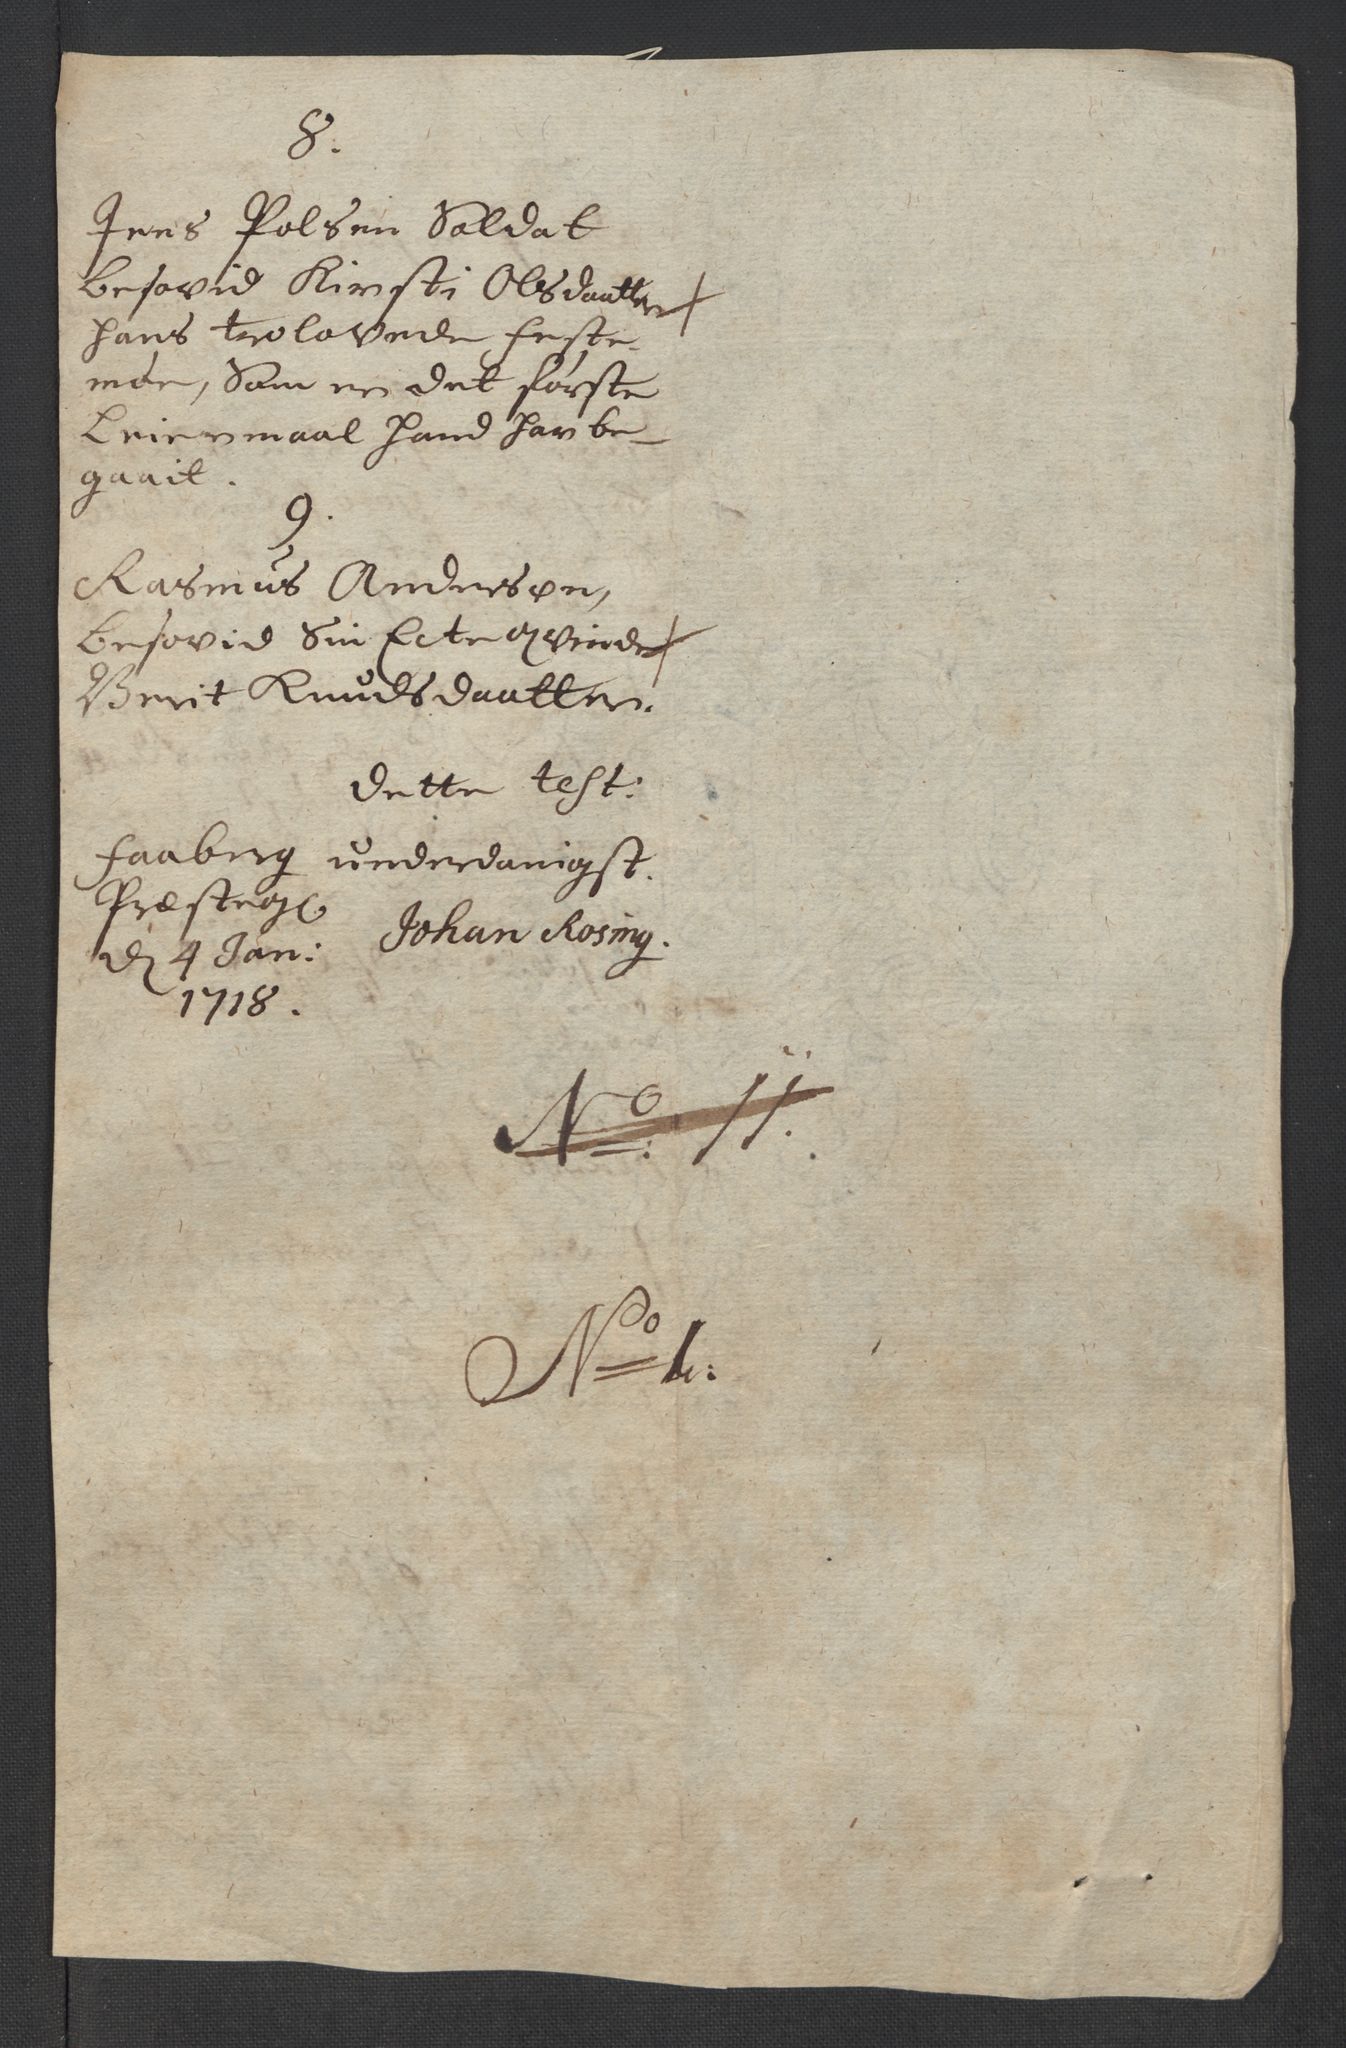 8.
Jens Polsen Soldat
besovid Kirsti Olsdaatter
hans trolovede feste-
møe, Som er det første
Leiermaal hand har be-
gaait.
9.
Rasmus Andersøn,
besovid Sin Ecte qvinde
Berit Knudsdaatter.
dette test:
faaberg underdanigst.
Præsteg:
d 4 Jan: Johan Rosing.
1718.
No: 11.
No 1: